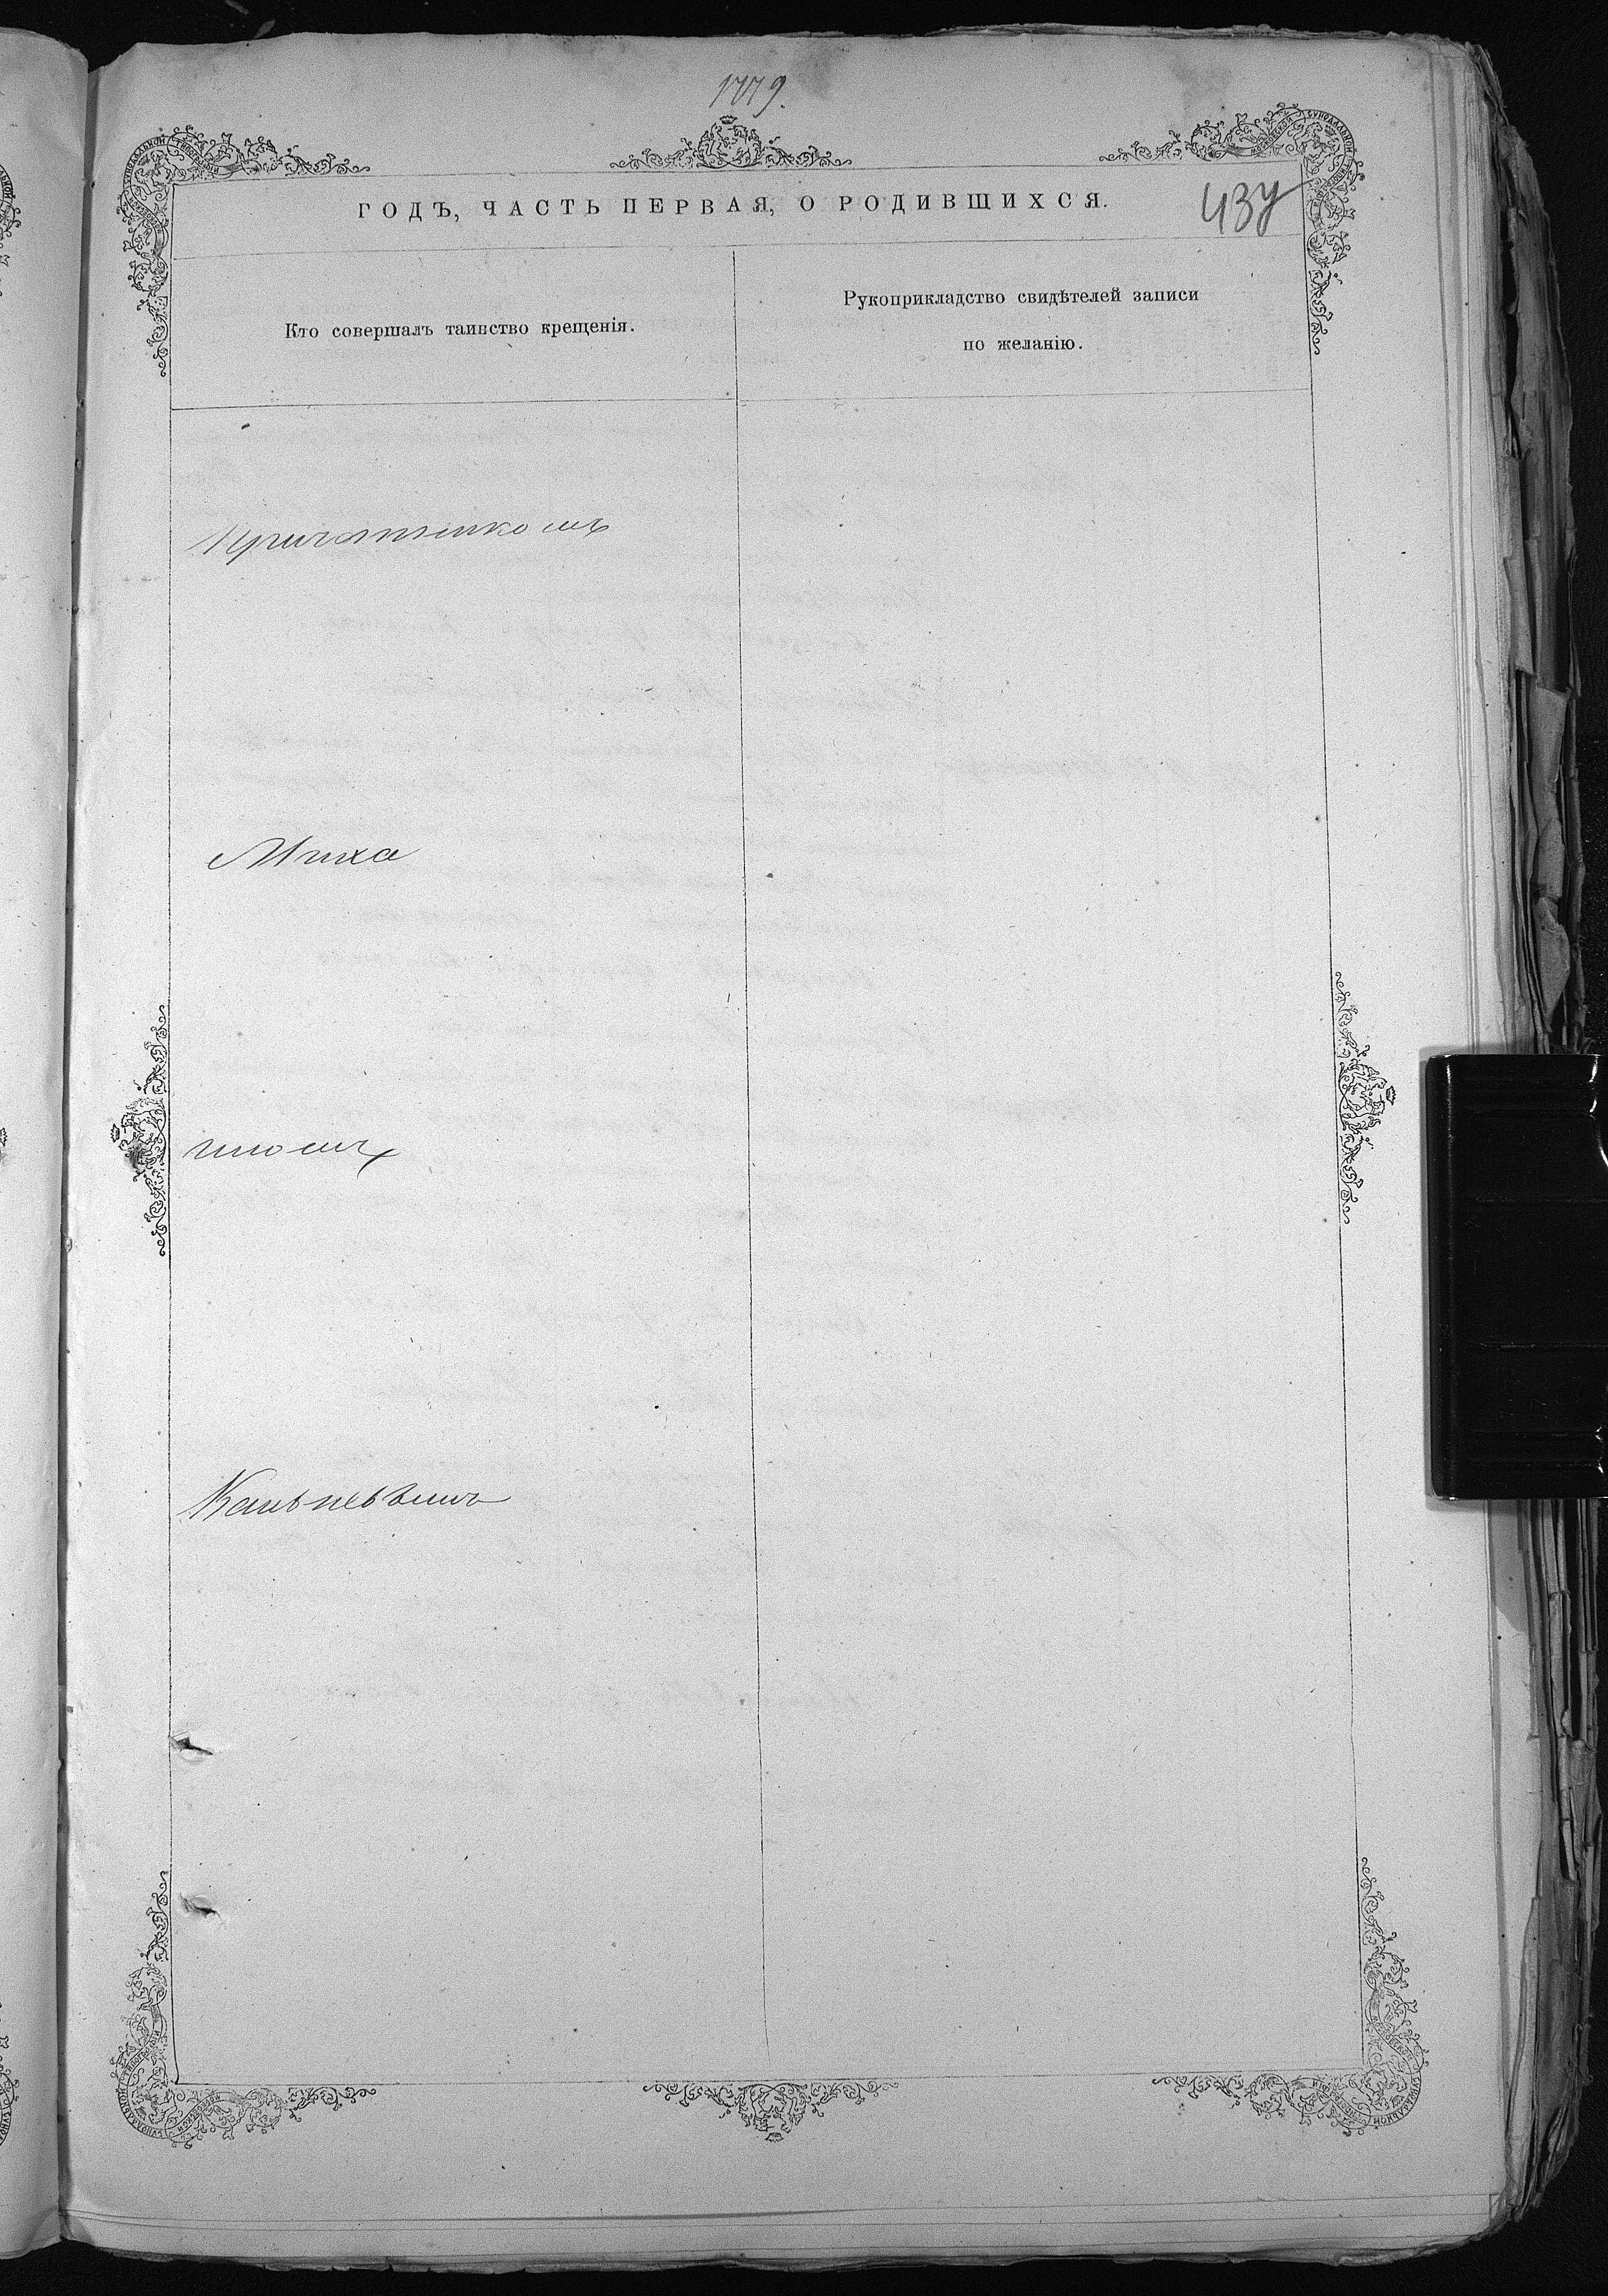 1779.
ГОДЪ, ЧАСТЬ ПЕРВАЯ, О РОДИВШИХСЯ.
437
Кто совершалъ таинство крещенія.
Рукоприкладство свидѣтелей записи
по желанію.
Причотникомъ
Миха
иломъ